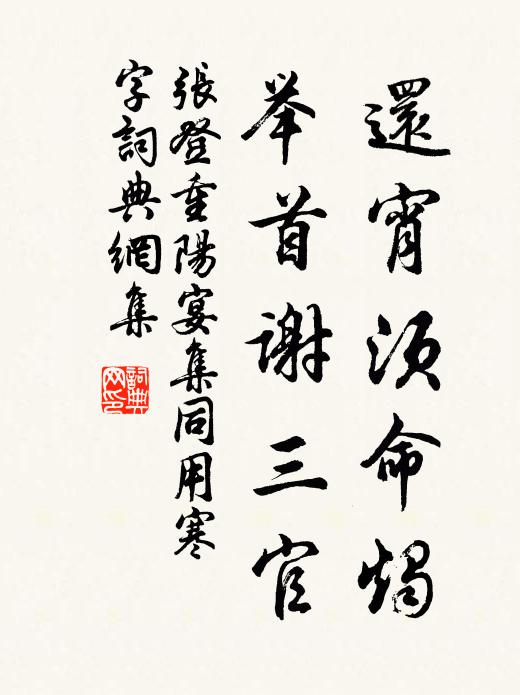 還宵須命燭
举首謝三官
張登重陽宴集同用寒
字詞典網集
詞典
网印